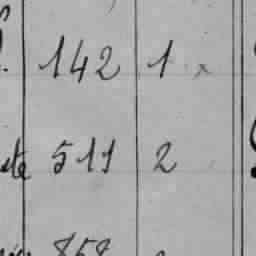 142 1 x
ete 511 2
858